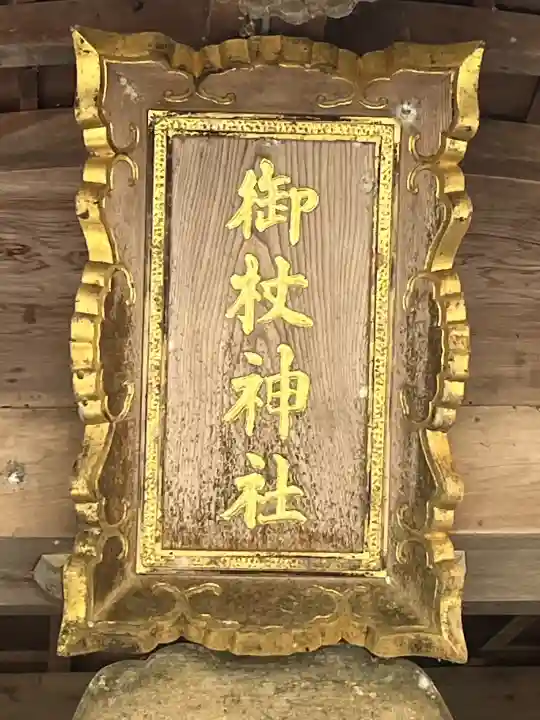 御杖神社